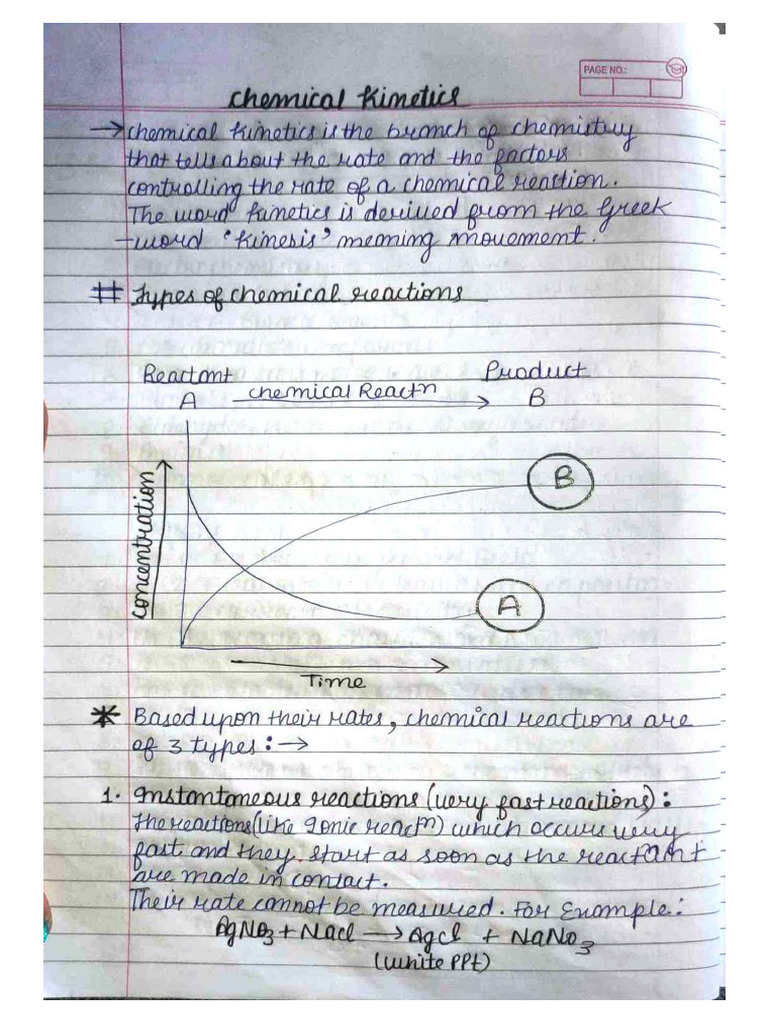 PAGE NO.:
Chemical Kinetics
→ Chemical kinetics is the branch of chemistry
that tells about the rate and the factors
controlling the rate of a chemical reaction.
The word kinetics is derived from the Greek
-word 'kinesis' meaning movement.
# Types of chemical reactions
Reactant Product
A chemical Reactn → B
Concentration
B
A
Time
* Based upon their rates, chemical reactions are
of 3 types: →
1. Instantaneous reactions (very fast reactions):
The reactions (like Ionic reactn) which occurs very
fast and they start as soon as the reactant
are made in contact.
Their rate cannot be measured. For Example:
AgNO3 + Nacl → Agcl + NaNo3
(white PPt)